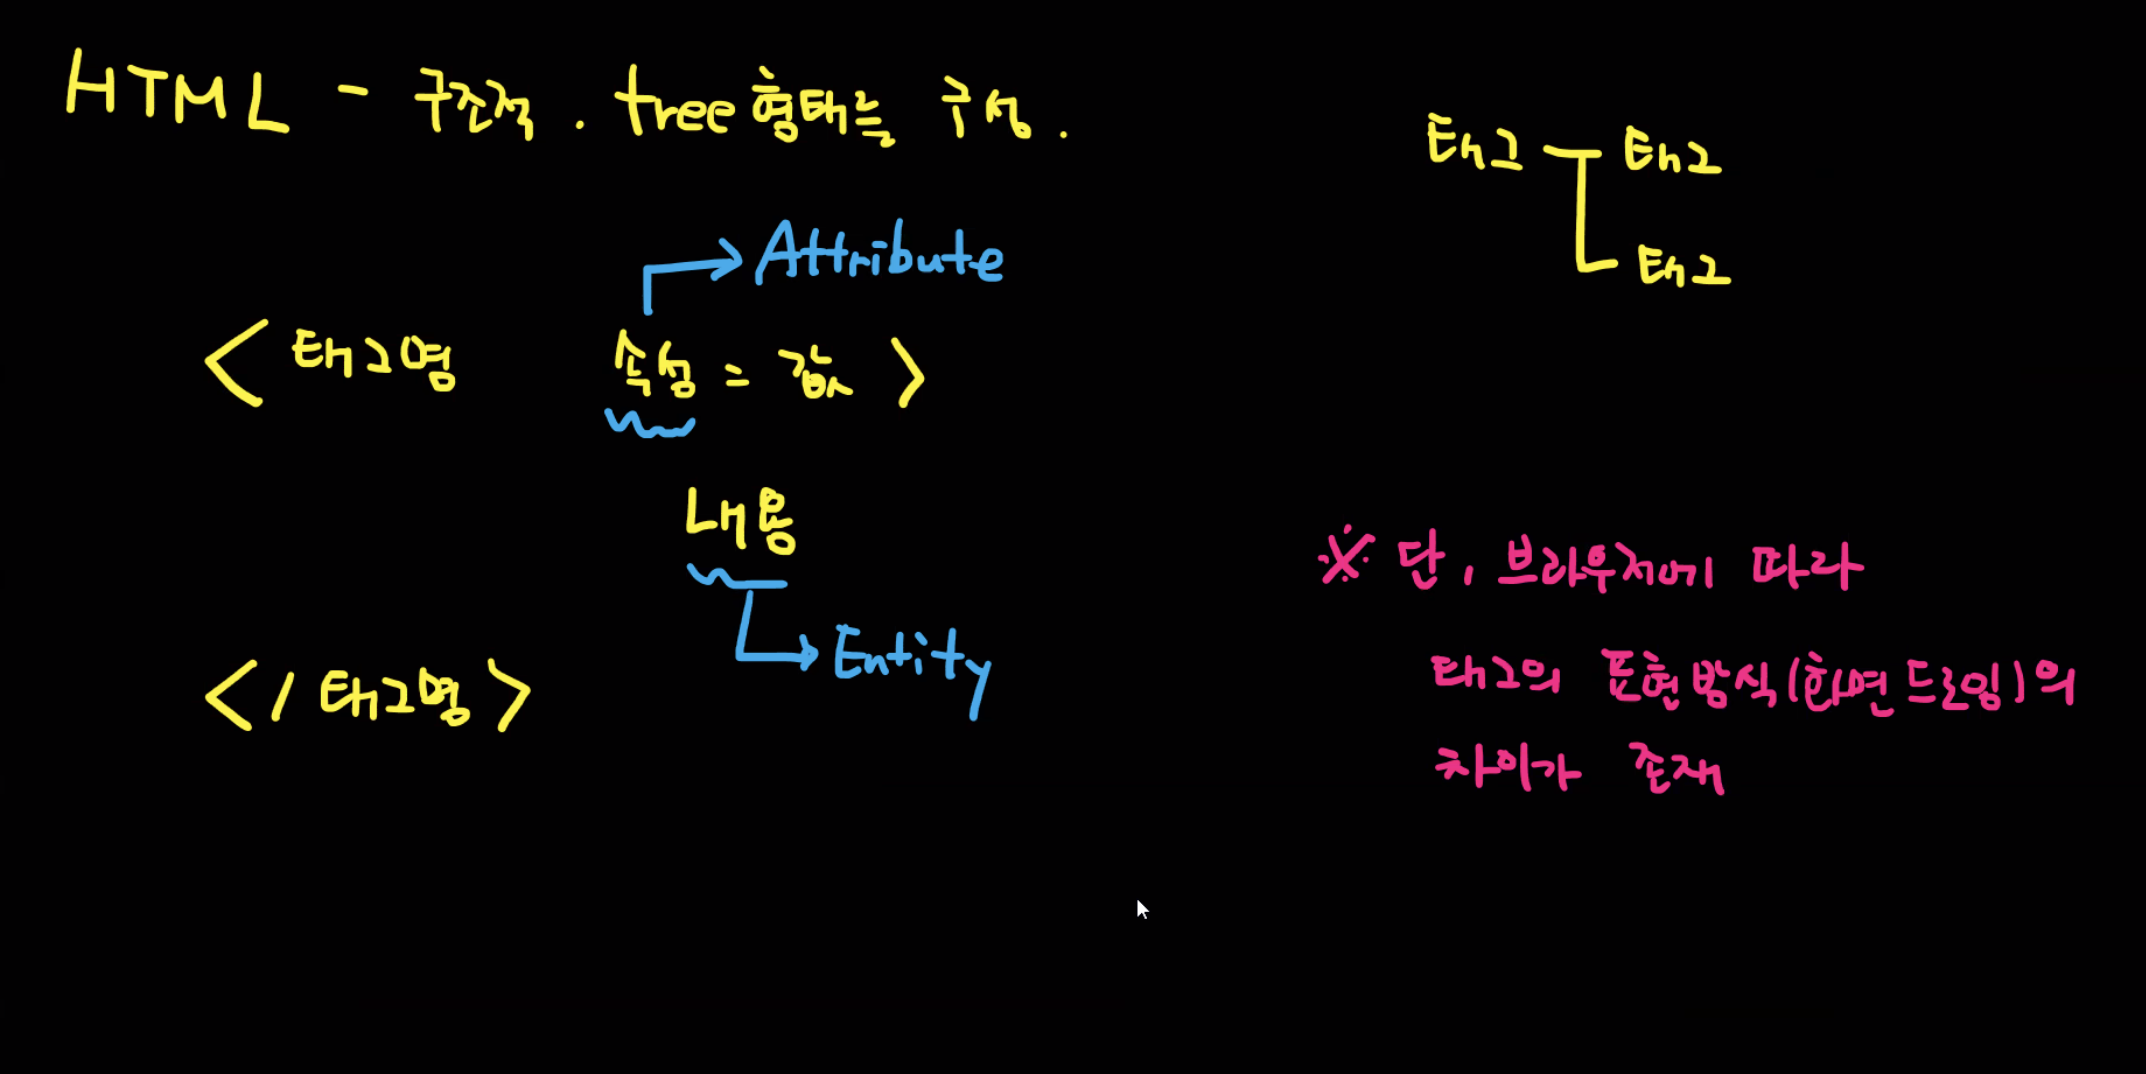 HTML - 구조적. tree 형태를 구성.
태그 태그
태그
Attribute
<태그명 속성 = 값>
내용
Entity
</태그명>
※ 단, 브라우저에 따라
태그의 표현방식(화면 드로잉)의
차이가 존재